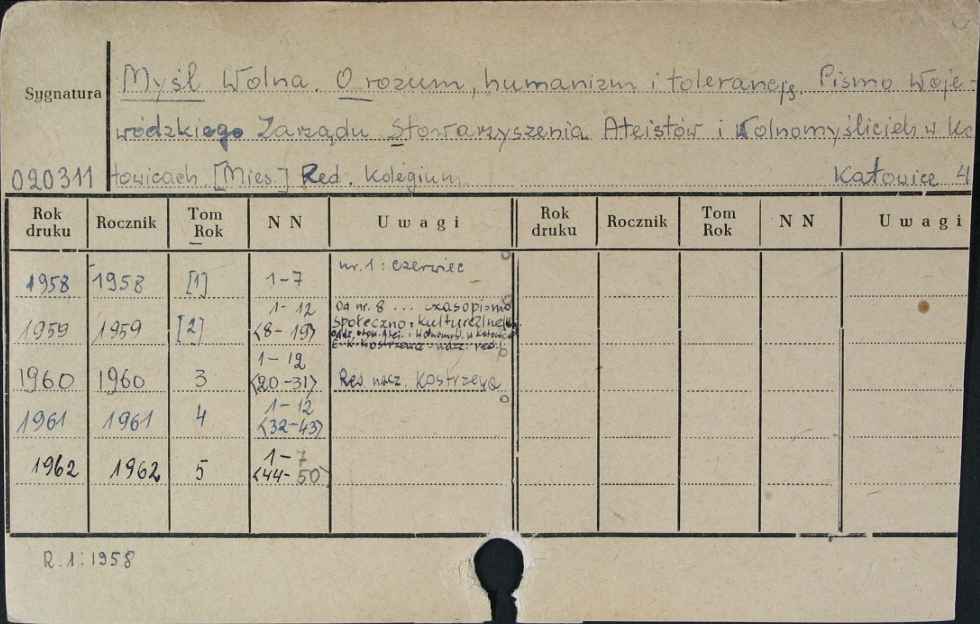 Myśl Wolna. O rozum, humanizm i tolerancję. Pismo Woje-
Sygnatura
wódzkiego Zarządu Stowarzyszenia Ateistów i Wolnomyślicieli w Ka
020311 towicach. [Mies.] Red. Kolegium. Katowice 4
Rok druku Rocznik Tom Rok N N Uwagi Rok druku Rocznik Tom Rok N N Uwagi
1958 1958 [1] 1-7 nr. 1: czerwiec
1959 1959 [2] 1-12 <8-19> Od nr. 8 ... czasopismo
społeczno-kulturalne
1960 1960 3 1-12 <20-31> Red. nacz. Kostrzewa
1961 1961 4 1-12 <32-43>
1962 1962 5 1-7 <44-50>
R. 1: 1958